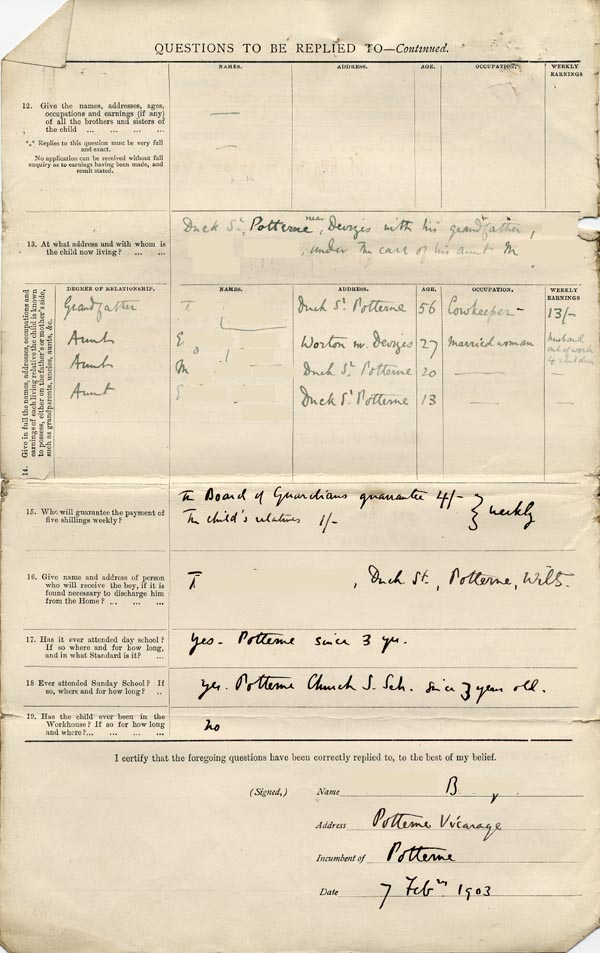 QUESTIONS TO BE REPLIED TO—Continued.
NAMES. ADDRESS. AGE. OCCUPATION. WEEKLY EARNINGS
12. Give the names, addresses, ages,
occupations and earnings (if any)
of all the brothers and sisters of
the child ... ... ... ...
*** Replies to this question must be very full
and exact.
No application can be received without full
enquiry as to earnings having been made, and
result stated.
Duck St, Potterne near Devizes with his grandfather,
13. At what address and with whom is
the child now living? ... ...
, under the care of his aunt M
14. Give in full the names, addresses, occupations and
earnings of each living relative the child is known
to possess, either on the father's or mother's side,
such as grandparents, uncles, aunts, &c.
DEGREE OF RELATIONSHIP. NAMES. ADDRESS. AGE. OCCUPATION. WEEKLY EARNINGS
Grandfather T Duck St Potterne 56 Cowkeeper - 13/-
Aunt E Worton nr. Devizes 27 married woman husband out of work 4 children
Aunt M Duck St Potterne 20 —
Aunt E Duck St Potterne 13 — —
15. Who will guarantee the payment of
five shillings weekly?
The Board of Guardians guarantee 4/-
The child's relatives 1/-
} weekly
16. Give name and address of person
who will receive the boy, if it is
found necessary to discharge him
from the Home? ... ... ...
T , Duck St., Potterne, Wilts.
17. Has it ever attended day school?
If so where and for how long,
and in what Standard is it? ...
Yes - Potterne since 3 yrs.
18 Ever attended Sunday School? If
so, where and for how long? ..
yes. Potterne Church S. Sch. since 3 years old.
19. Has the child ever been in the
Workhouse? If so for how long
and where?... ... ... ...
no
I certify that the foregoing questions have been correctly replied to, to the best of my belief.
(Signed,) Name B y
Address Potterne Vicarage
Incumbent of Potterne
Date 7 Feby 1903